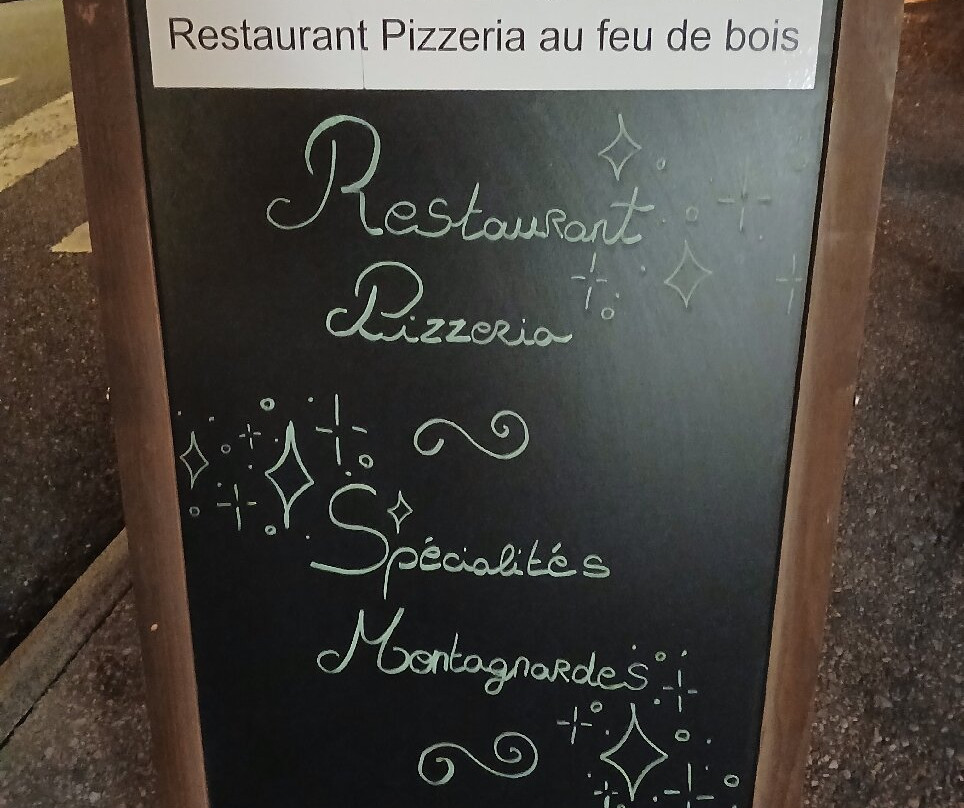 Restaurant Pizzeria au feu de bois
Restaurant
Pizzeria
Spécialités
Montagnardes